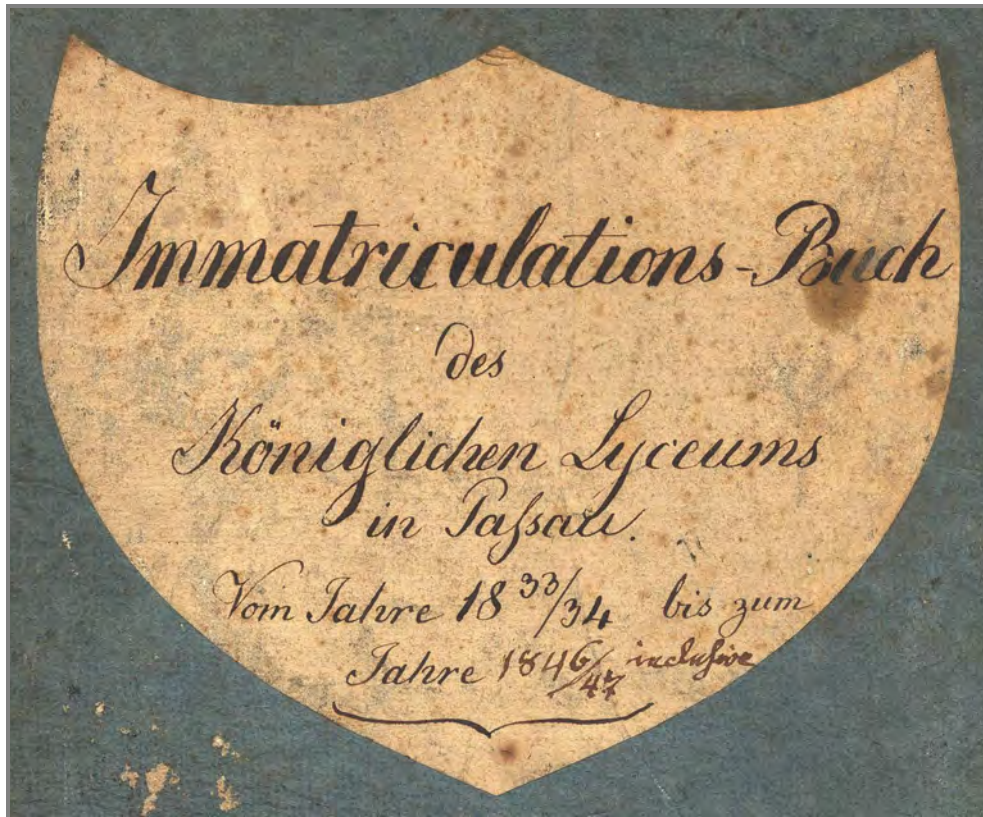 Immatriculations-Buch
des
Königlichen Lyceums
in Paſsau.
Vom Jahre 18 33/34 bis zum
Jahre 1846/47 incluſive